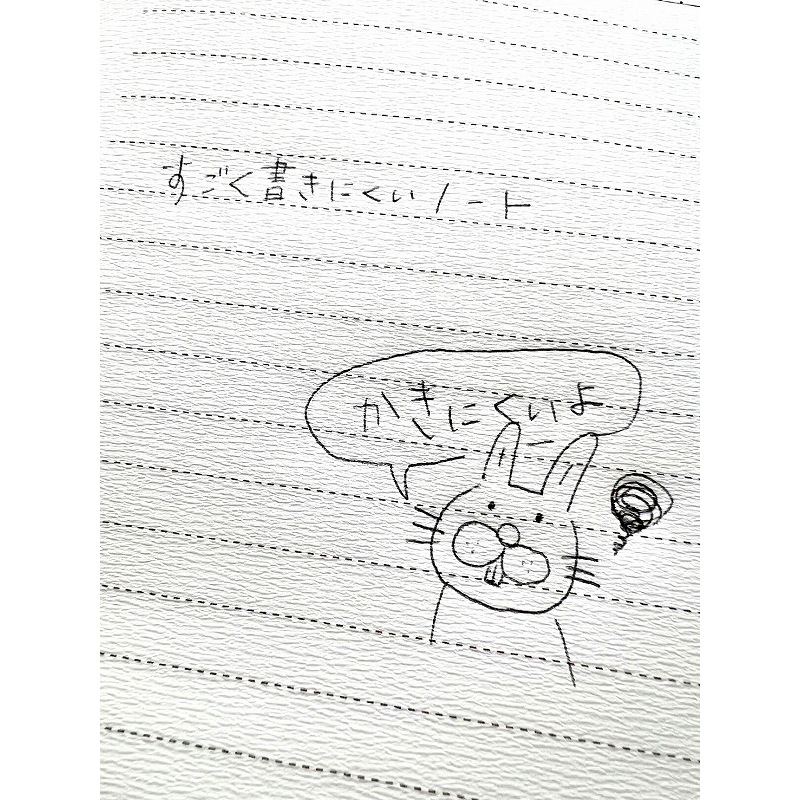 すごく書きにくいノート
かきにくいよー